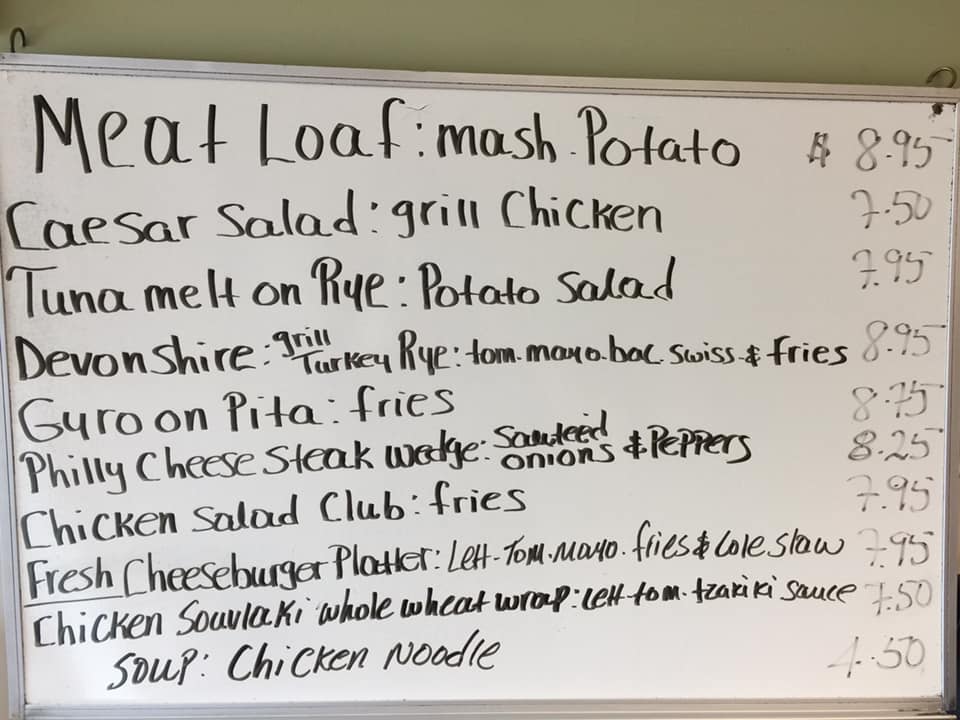 Meat Loaf: mash Potato $ 8.95
Caesar Salad: grill Chicken 7.50
Tuna melt on Rye: Potato Salad 7.95
Devonshire: grill Turkey Rye: tom. mayo. bac. swiss & fries 8.95
Gyro on Pita: fries 8.75
Philly Cheese Steak wedge: Sauteed onions & Peppers 8.25
Chicken Salad Club: fries 7.95
Fresh Cheeseburger Platter: Lett-Tom. Mayo. fries & Cole slaw 7.95
Chicken Souvlaki whole wheat wrap: lett tom. tzakiki sauce 7.50
Soup: Chicken Noodle 4.50